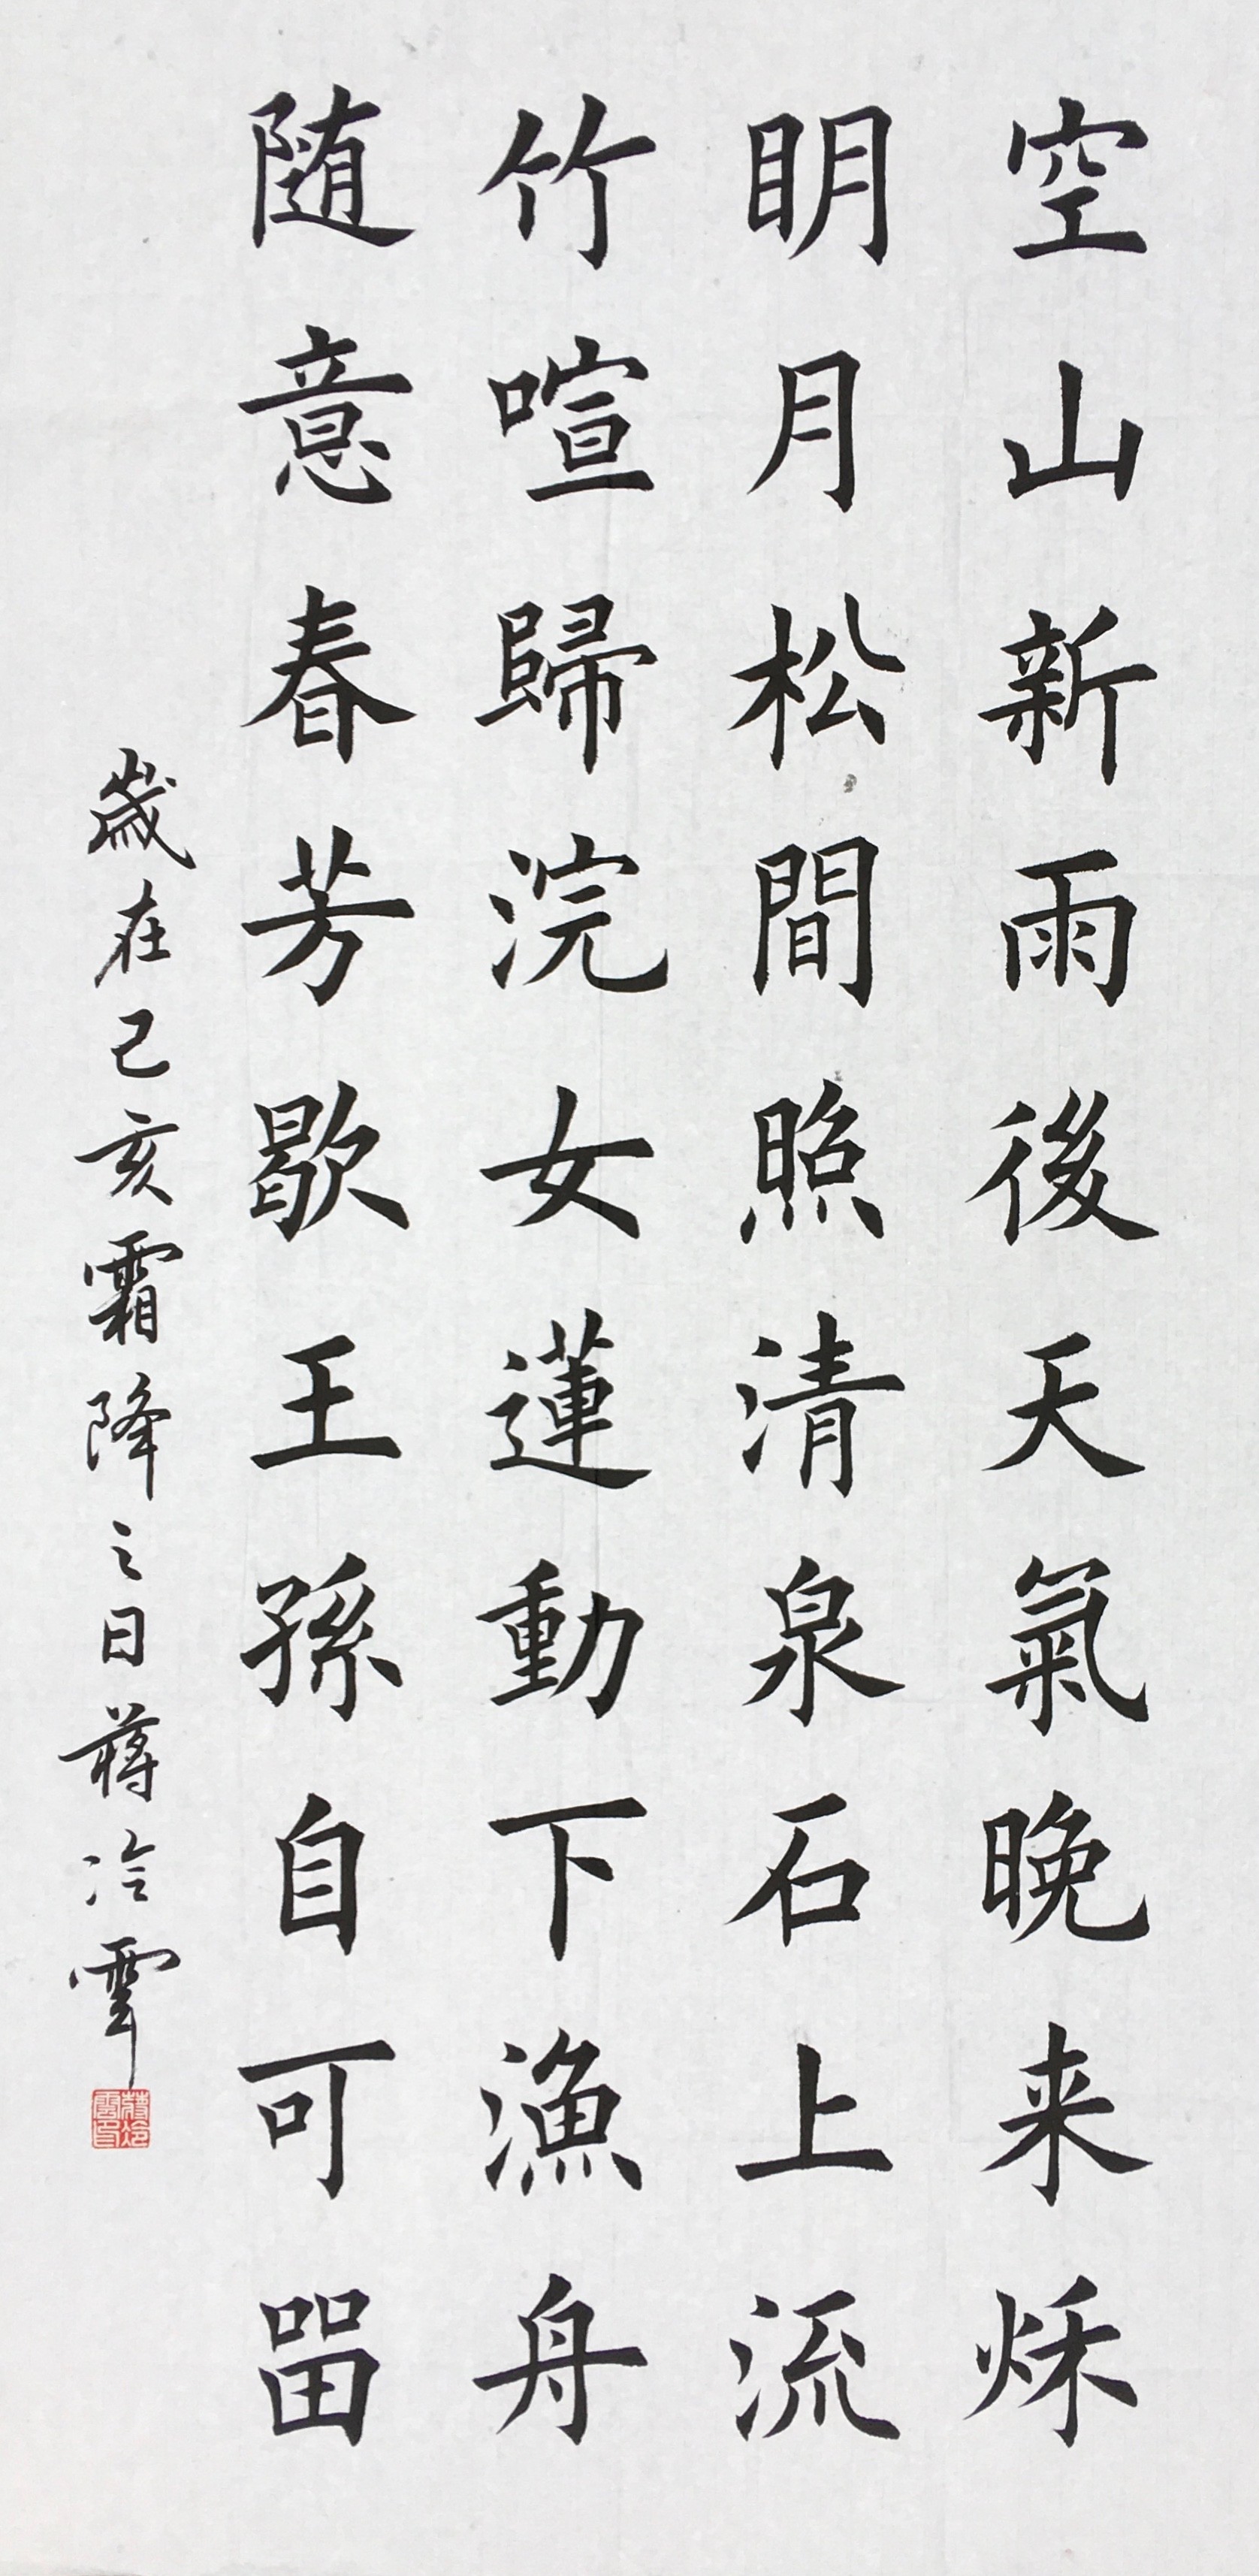 空山新雨後天氣晚来秌
明月松間照清泉石上流
竹喧歸浣女蓮動下漁舟
随意春芳歇王孫自可留
歲在己亥霜降之日蔣冷雲
蔣冷雲印